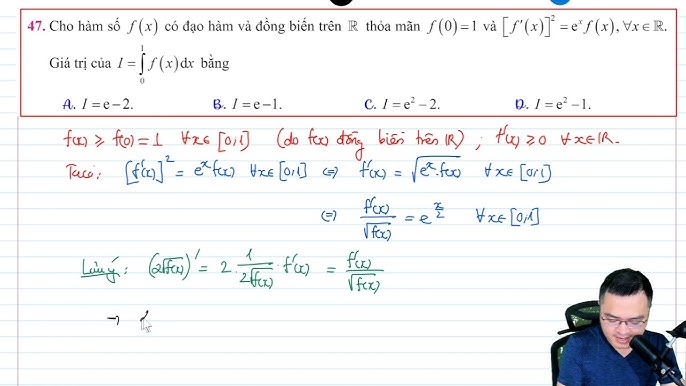 47. Cho hàm số f(x) có đạo hàm và đồng biến trên ℝ thỏa mãn f(0)=1 và [f′(x)]²=eˣf(x),∀x∈ℝ.
Giá trị của I=∫₀¹f(x)dx bằng
A. I=e−2. B. I=e−1. C. I=e²−2. D. I=e²−1.
f(x) ⩾ f(0) = 1 ∀x∈[0,1] (do f(x) đồng biến trên ℝ) ; f'(x) ⩾ 0 ∀x∈ℝ.
Ta có: [f'(x)]² = eˣf(x) ∀x∈[0,1] ⇔ f'(x) = √(eˣ.f(x)) ∀x∈[0,1]
⇔ f'(x)/√f(x) = e^(x/2) ∀x∈[0,1]
Lưu ý: (2√f(x))' = 2.1/(2√f(x)).f'(x) = f'(x)/√f(x)
→